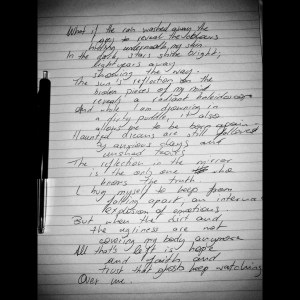 What if the rain washed away the
grey to reveal the
hiding underneath my skin
In the dark, stars shine bright;
light years away
shooting the way.
The sun is reflecting on the
broken pieces of my mind
reveals a radiant kaleidoscope
while I am drowning in
a dirty puddle, it also
allows me to be born again.
Haunted dreams are still followed
by anxious days and
unshed tears
The reflection in the mirror
is the only one who
knows the truth
I hug myself to keep from
falling apart, an internal
explosion of emotions
But when the dirt and
the ugliness are not
covering my body anymore
All that's left is hope
and faith, and
trust that ghosts keep watching
Over me.